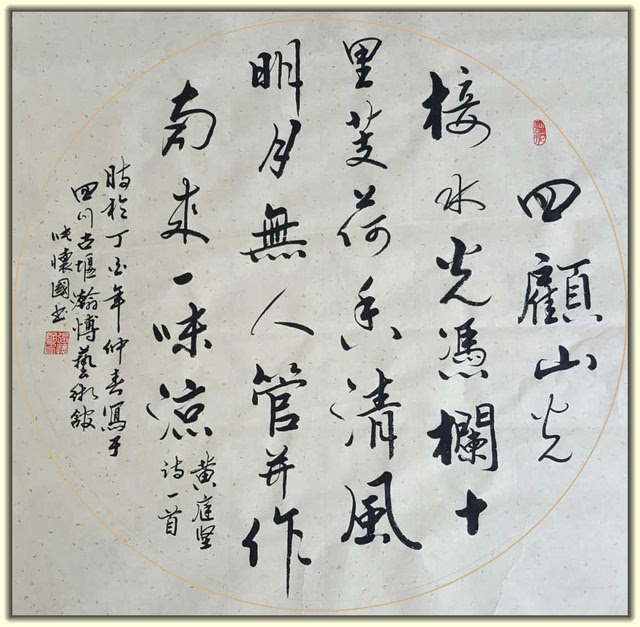 四顧山光
接水光憑欄十
里芰荷香清風
明月無人管并作
南来一味涼
黄庭坚
诗一首
時於丁酉年仲春寫于
四川古堰瀚博藝術館
懷國书